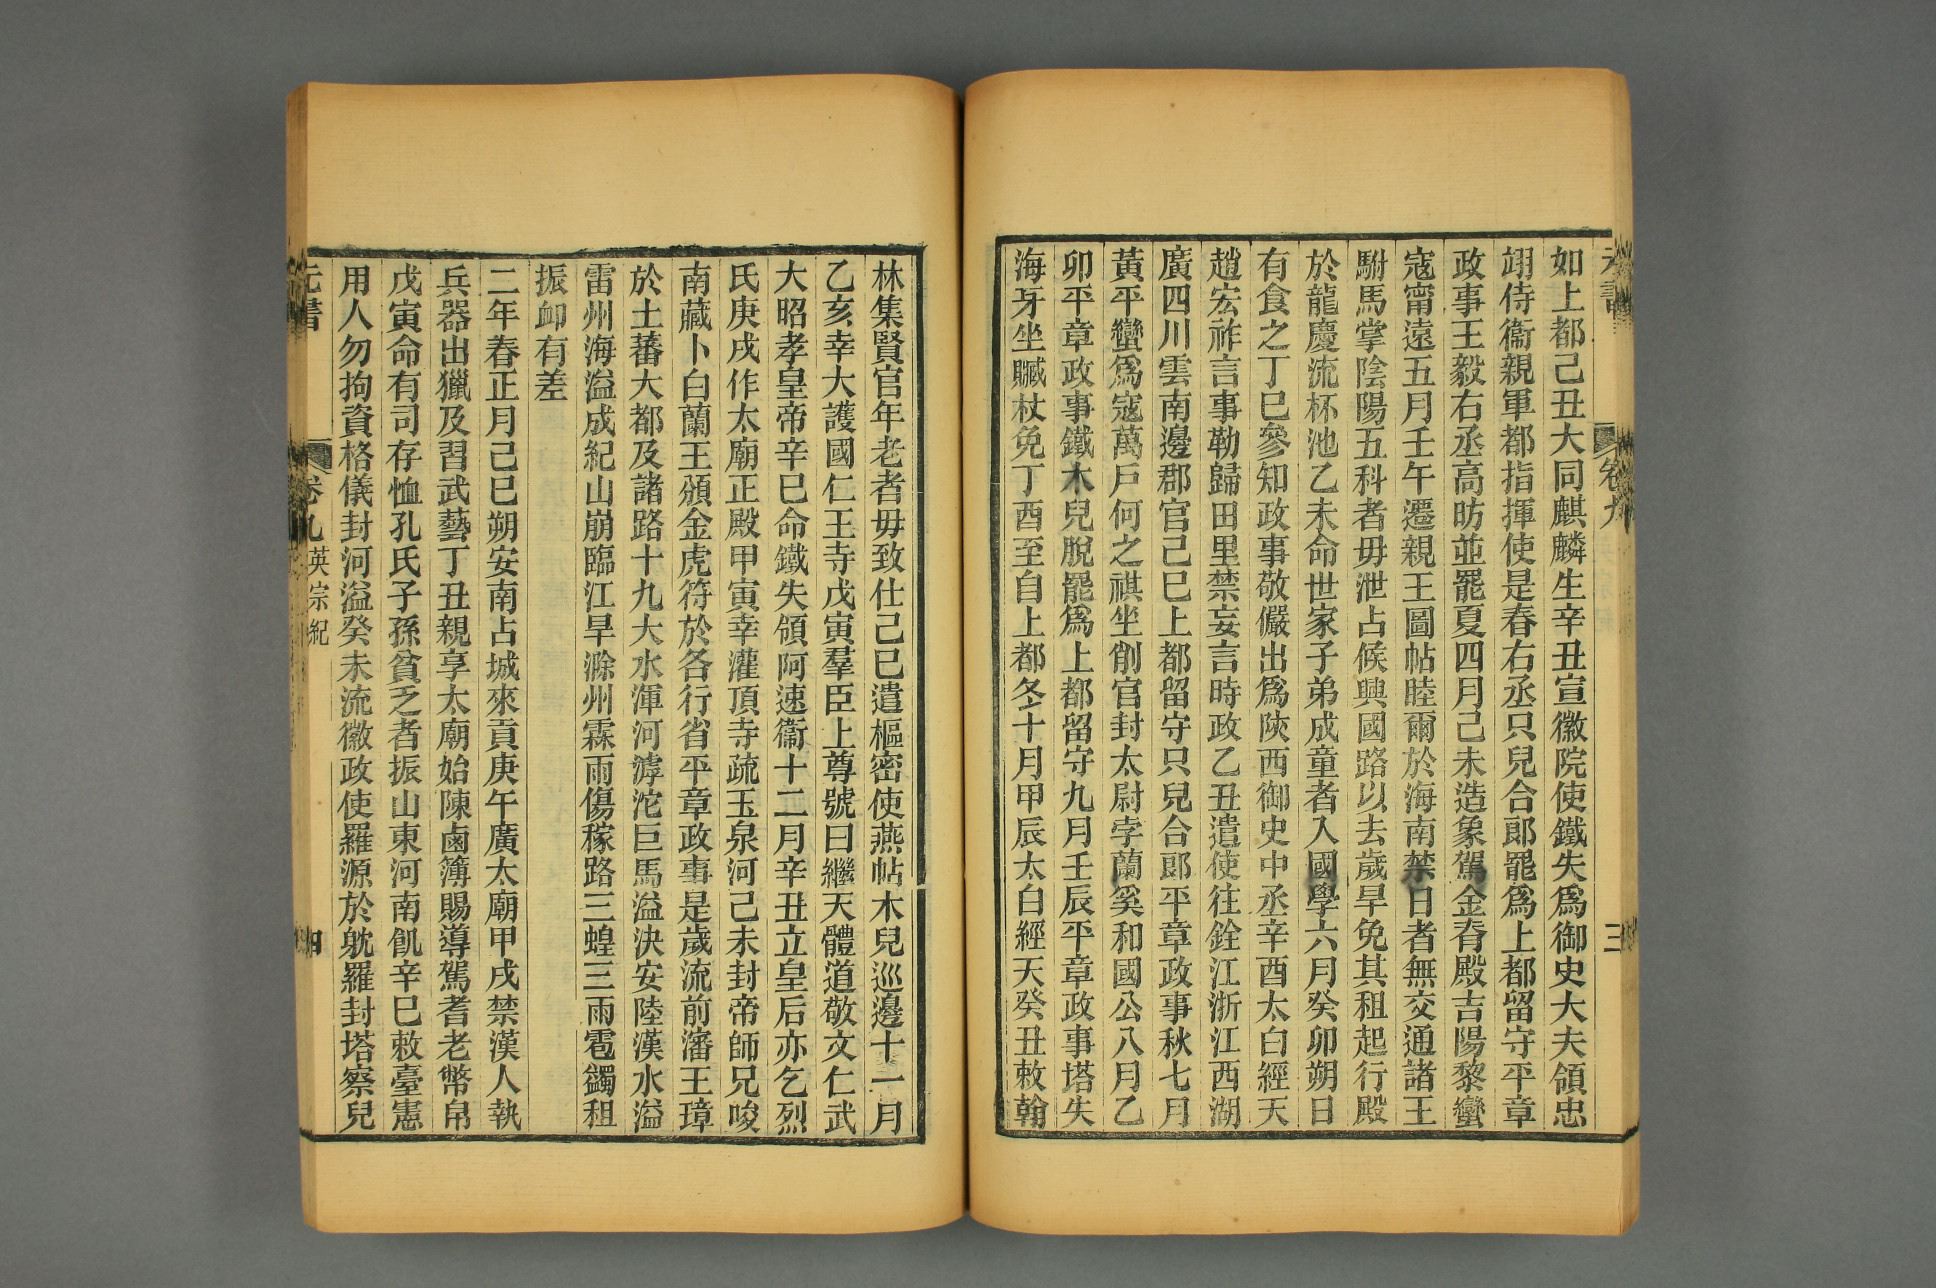 如上都己丑大同麒麟生辛丑宣徽院使鐵失爲御史大夫領忠
翊侍衞親軍都指揮使是春右丞只兒合郞罷爲上都留守平章
政事王毅右丞高昉並罷夏四月己未造象駕金脊殿吉陽黎蠻
寇甯遠五月壬午遷親王圖帖睦爾於海南禁日者無交通諸王
駙馬掌陰陽五科者毋泄占候興國路以去歲旱免其租起行殿
於龍慶流杯池乙未命世家子弟成童者入國學六月癸卯朔日
有食之丁巳參知政事敬儼出爲陝西御史中丞辛酉太白經天
趙宏祚言事勒歸田里禁妄言時政乙丑遣使往銓江浙江西湖
廣四川雲南邊郡官己巳上都留守只兒合郞平章政事秋七月
黃平蠻爲寇萬戶何之祺坐削官封太尉孛蘭奚和國公八月乙
卯平章政事鐵木兒脫罷爲上都留守九月壬辰平章政事塔失
海牙坐贓杖免丁酉至自上都冬十月甲辰太白經天癸丑敕翰
林集賢官年老者毋致仕己巳遣樞密使燕帖木兒巡邊十一月
乙亥幸大護國仁王寺戊寅羣臣上尊號曰繼天體道敬文仁武
大昭孝皇帝辛巳命鐵失領阿速衞十二月辛丑立皇后亦乞烈
氏庚戌作太廟正殿甲寅幸灌頂寺疏玉泉河己未封帝師兄唆
南藏卜白蘭王頒金虎符於各行省平章政事是歲流前瀋王璋
於土蕃大都及諸路十九大水渾河滹沱巨馬溢決安陸漢水溢
雷州海溢成紀山崩臨江旱滁州霖雨傷稼路三蝗三雨雹蠲租
振卹有差
二年春正月己巳朔安南占城來貢庚午廣太廟甲戌禁漢人執
兵器出獵及習武藝丁丑親享太廟始陳鹵簿賜導駕耆老幣帛
戊寅命有司存恤孔氏子孫貧乏者振山東河南飢辛巳敕臺憲
用人勿拘資格儀封河溢癸未流徽政使羅源於躭羅封塔察兒
元書
卷九
英宗紀
四
卷九
三